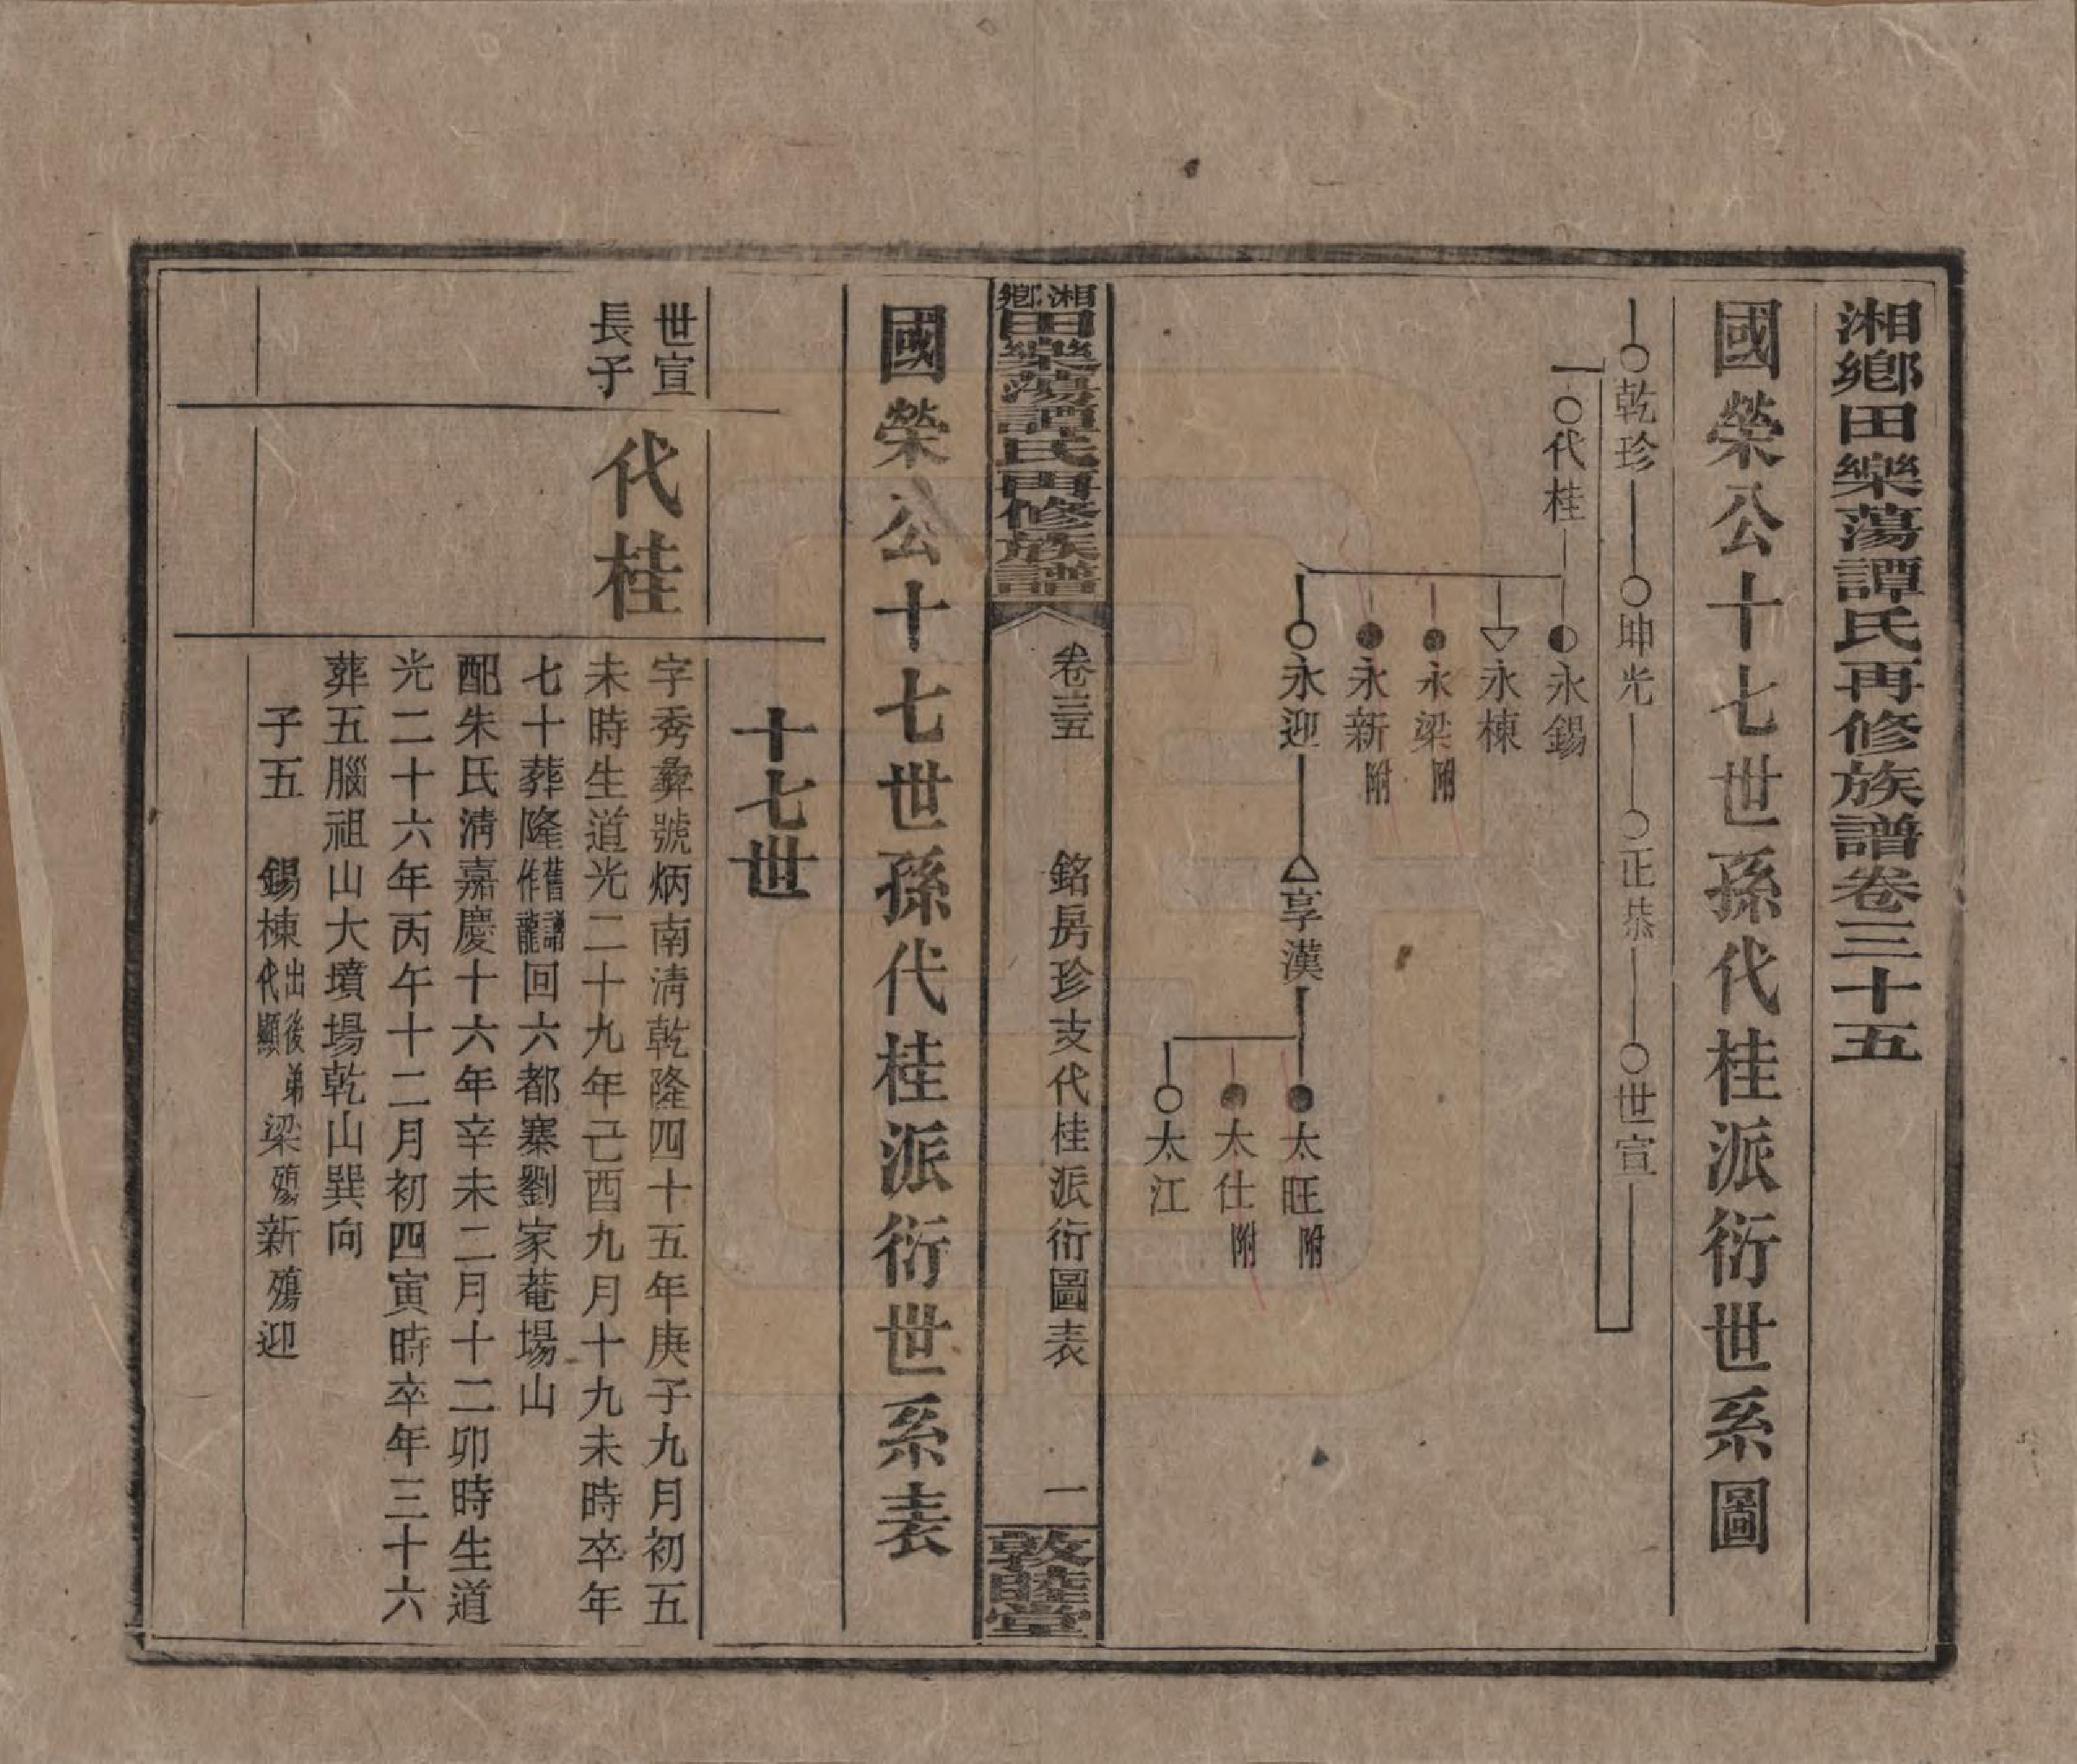 湘鄉田樂蕩譚氏再修族譜卷三十五
國榮公十七世孫代桂派衍世系圖
乾珍 坤光 正恭 世宣
代桂
永錫
永棟
永梁附
永新附
永迎 享漢
太旺附
太仕附
太江
湘鄉田樂蕩譚氏再修族譜
卷三五 銘房珍支代桂派衍圖表 一
敦睦堂
國榮公十七世孫代桂派衍世系表
十七世
世宣
長子
代桂
字秀彝號炳南淸乾隆四十五年庚子九月初五
未時生道光二十九年己酉九月十九未時卒年
七十葬隆舊譜作龍回六都寨劉家菴場山
配朱氏淸嘉慶十六年辛未二月十二卯時生道
光二十六年丙午十二月初四寅時卒年三十六
葬五腦祖山大墳場乾山巽向
子五 錫棟出後弟代顯梁殤新殤迎